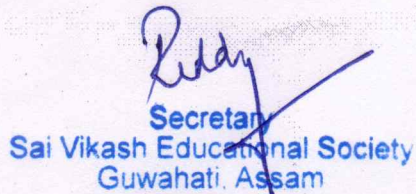 Reddy
Secretary
Sai Vikash Educational Society
Guwahati, Assam